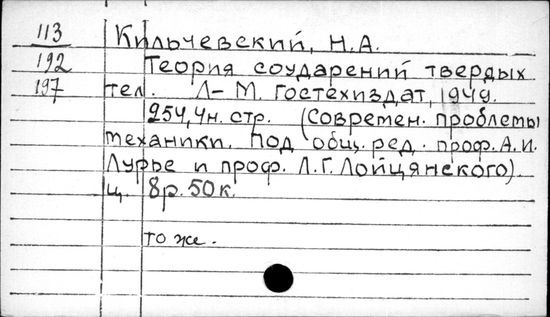 113 Кильчевский, Н.А.
192 Теория соударений твердых
197 тел. Л-М. Гостехиздат, 1949.
254, 4н. стр. (Современ. проблемы
механики. Под общ. ред. проф. А.И.
Лурье и проф. Л.Г. Лойцянского).
Ц. 8р. 50к.
то же.